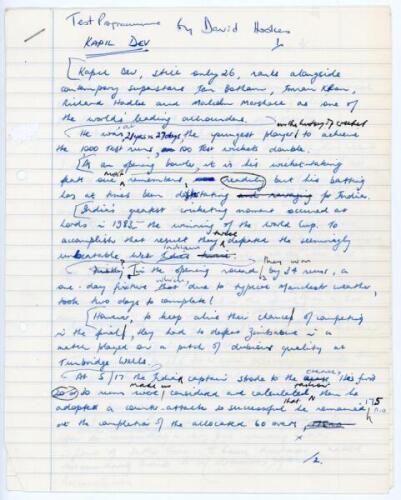 Test Programme by David Hookes
KAPIL DEV
Kapil Dev, still only 26, ranks alongside
contemporary superstars Ian Botham, Imran Khan,
Richard Hadlee and Malcolm Marshall as one of
the worlds leading allrounders.
in the history of cricket
He was at 21 years 27 days the youngest player to achieve
the 1000 test runs, 100 test wickets double.
As an opening bowler, it is his wicket-taking
feats one most remembers readily but his batting
has at times been devastating and ravaging for India.
India's greatest cricketing moment occurred at
Lords in 1983 the winning of the world cup. To
accomplish that result they twice defeated the seemingly
unbeatable West Indians
Firstly in the opening round they won by 34 runs, a
one-day fixture that due to typical Manchester weather,
took two days to complete!
However, to keep alive their chances of competing
in the final, they had to defeat Zimbabwe in a
match played on a pitch of dubious quality at
Tunbridge Wells.
At 5/17 the Indian captain strode to the crease. His first
20 runs were made in considered and calculated fashion then he
adopted a counter-attack so successful that he remained 175 n.o
at the completion of the allocated 60 overs,
/2.